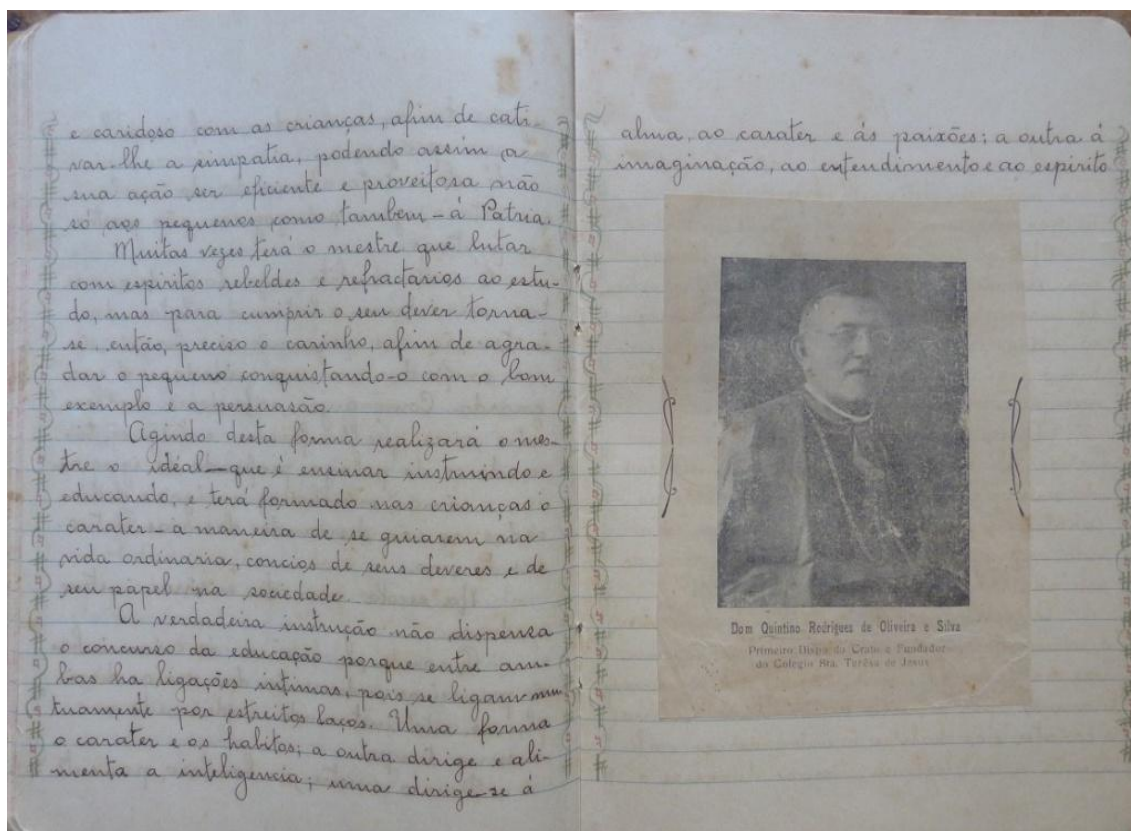 e caridoso com as crianças, afim de cati-
var-lhe a simpatia, podendo assim a
sua ação ser eficiente e proveitosa não
só aos pequenos como tambem - á Patria.
Muitas vezes terá o mestre que lutar
com espiritos rebeldes e refractarios ao estu-
do, mas para cumprir o seu dever torna-
se então, preciso o carinho, afim de agra-
dar o pequeno conquistando-o com o bom
exemplo e a persuasão.
Agindo desta forma realizará o mes-
tre o idéal - que é ensinar instruindo e
educando, e terá formado nas crianças o
carater - a maneira de se guiarem na
vida ordinaria, concios de seus deveres e de
seu papel na sociedade.
A verdadeira instrução não dispensa
o concurso da educação porque entre am-
bas ha ligações intimas, pois se ligam mu
tuamente por estreitos laços. Uma forma
o carater e os habitos; a outra dirige e ali-
menta a inteligencia; uma dirige-se á
alma, ao carater e ás paixões; a outra á
imaginação, ao entendimento e ao espirito
Dom Quintino Rodrigues de Oliveira e Silva
Primeiro Bispo do Crato e Fundador
do Colegio Sta. Terêsa de Jesus